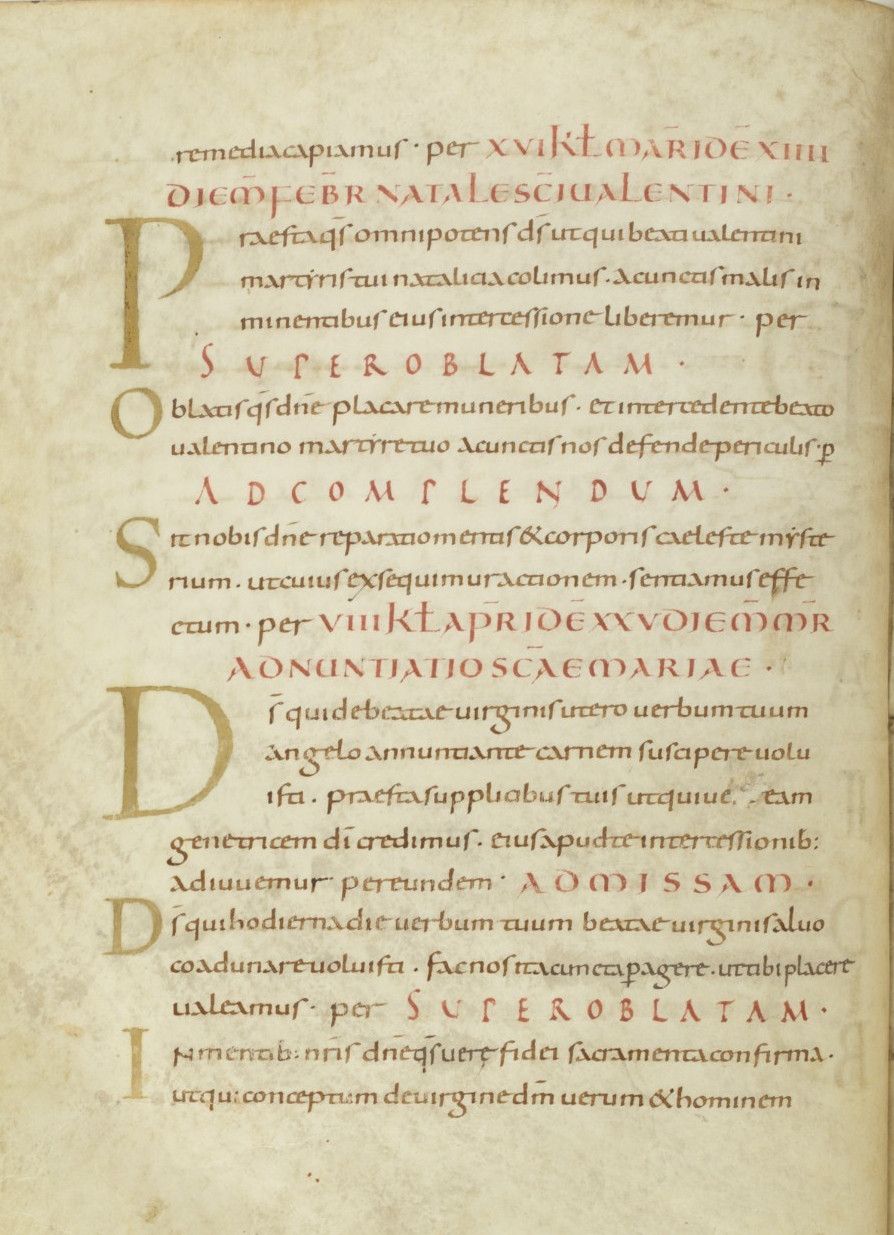 remedia capiamus · per XVI KŁ MAR̄ ID Ē XIIII
DIE M̄ FEB̄R NATALE SC̄I UALENTINI ·
Praesta q̄s omnipotens d̄s ut qui beati ualentini
martyris tui natalicia colimus · a cunctis malis in
minentibus eius intercessione liberemur · per
SUPER OBLATAM ·
Oblatis q̄s dn̄e placare muneribus · et intercedente beato
ualentino martyre tuo a cunctis nos defende periculis · ꝑ
AD COMPLENDUM ·
Sit nobis dn̄e reparatio mentis & corporis caeleste myste
rium · ut cuius exsequimur actionem · sentiamus effe
ctum · per VIII KŁ AP̄R ID Ē XXV DIE M̄ M̄R
ADNUNTIATIO SC̄AE MARIAE ·
D̄s qui de beatae uirginis utero uerbum tuum
angelo annuntiante carnem suscipere uolu
isti · praesta supplicibus tuis ut qui ue eam
genetricem dī credimus · eius apud te intercessionib:
adiuuemur per eundem · AD MISSAM ·
D̄s qui hodierna die uerbum tuum beatae uirginis aluo
coadunare uoluisti · fac nos ita cuncta ꝑagere · ut tibi placere
ualeamus · per SUPER OBLATAM ·
IN mentib: nr̄is dn̄e q̄s uerę fidei sacramenta confirma ·
ut qui conceptum de uirgine dm̄ uerum & hominem